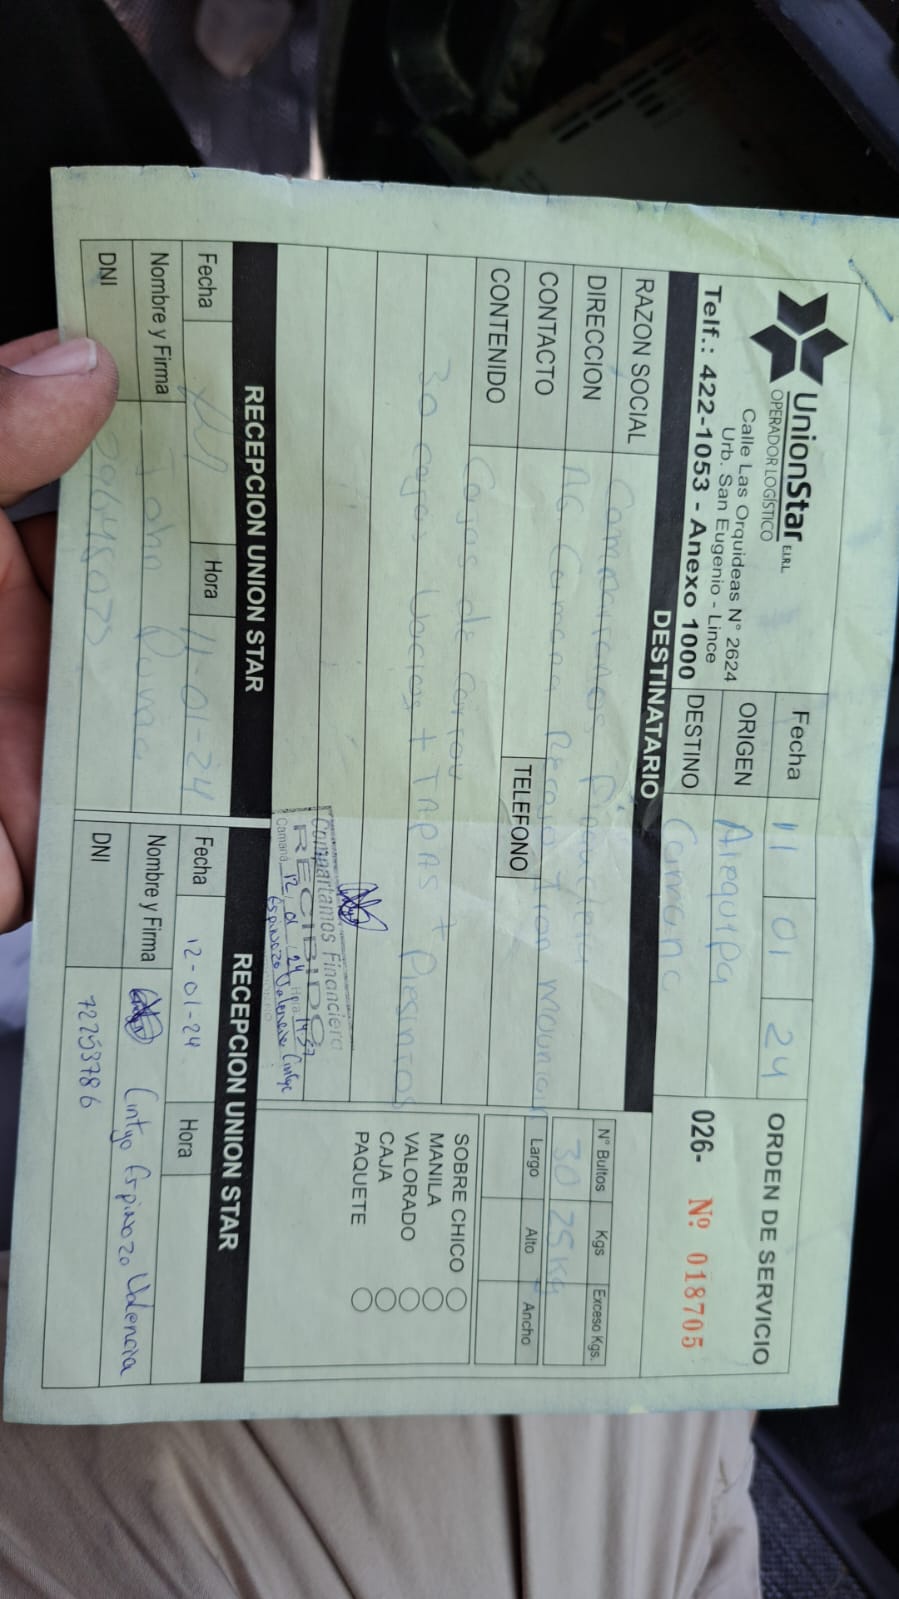 UnionStar E.I.R.L.
OPERADOR LOGÍSTICO
Calle Las Orquideas N° 2624
Urb. San Eugenio - Lince
Telf.: 422-1053 - Anexo 1000
Fecha 11 01 24
ORIGEN Arequipa
DESTINO Camana
ORDEN DE SERVICIO
026- Nº 018705
DESTINATARIO
RAZON SOCIAL Compartamos Financiera
DIRECCION AG Camana
CONTACTO
TELEFONO
CONTENIDO Cajas de carton
30 cajas Vacias + TAPAS + Presintos
N° Bultos Kgs Exceso Kgs.
30 25Kg
Largo Alto Ancho
SOBRE CHICO
MANILA
VALORADO
CAJA
PAQUETE
Compartamos Financiera
RECIBIDO
Camaná 12, 01, 24 Hora 14:57
Espinozo Valencia Cintya
RECEPCION UNION STAR
Fecha Hora 11-01-24
Nombre y Firma John Puma
DNI
RECEPCION UNION STAR
Fecha 12-01-24 Hora
Nombre y Firma Cintya Espinozo Valencia
DNI 72253786